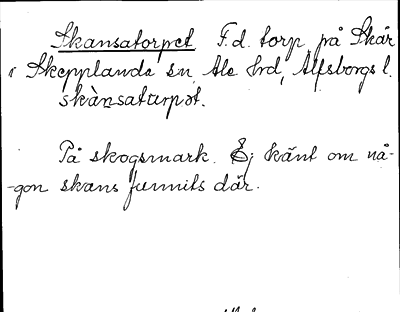 Skansatorpet F.d. torp på Skår
i Skepplanda sn, Ale hrd, Älfsborgs l.
skànsatarpǝt.
På skogsmark. Ej känt om nå-
-gon skans funnits där.